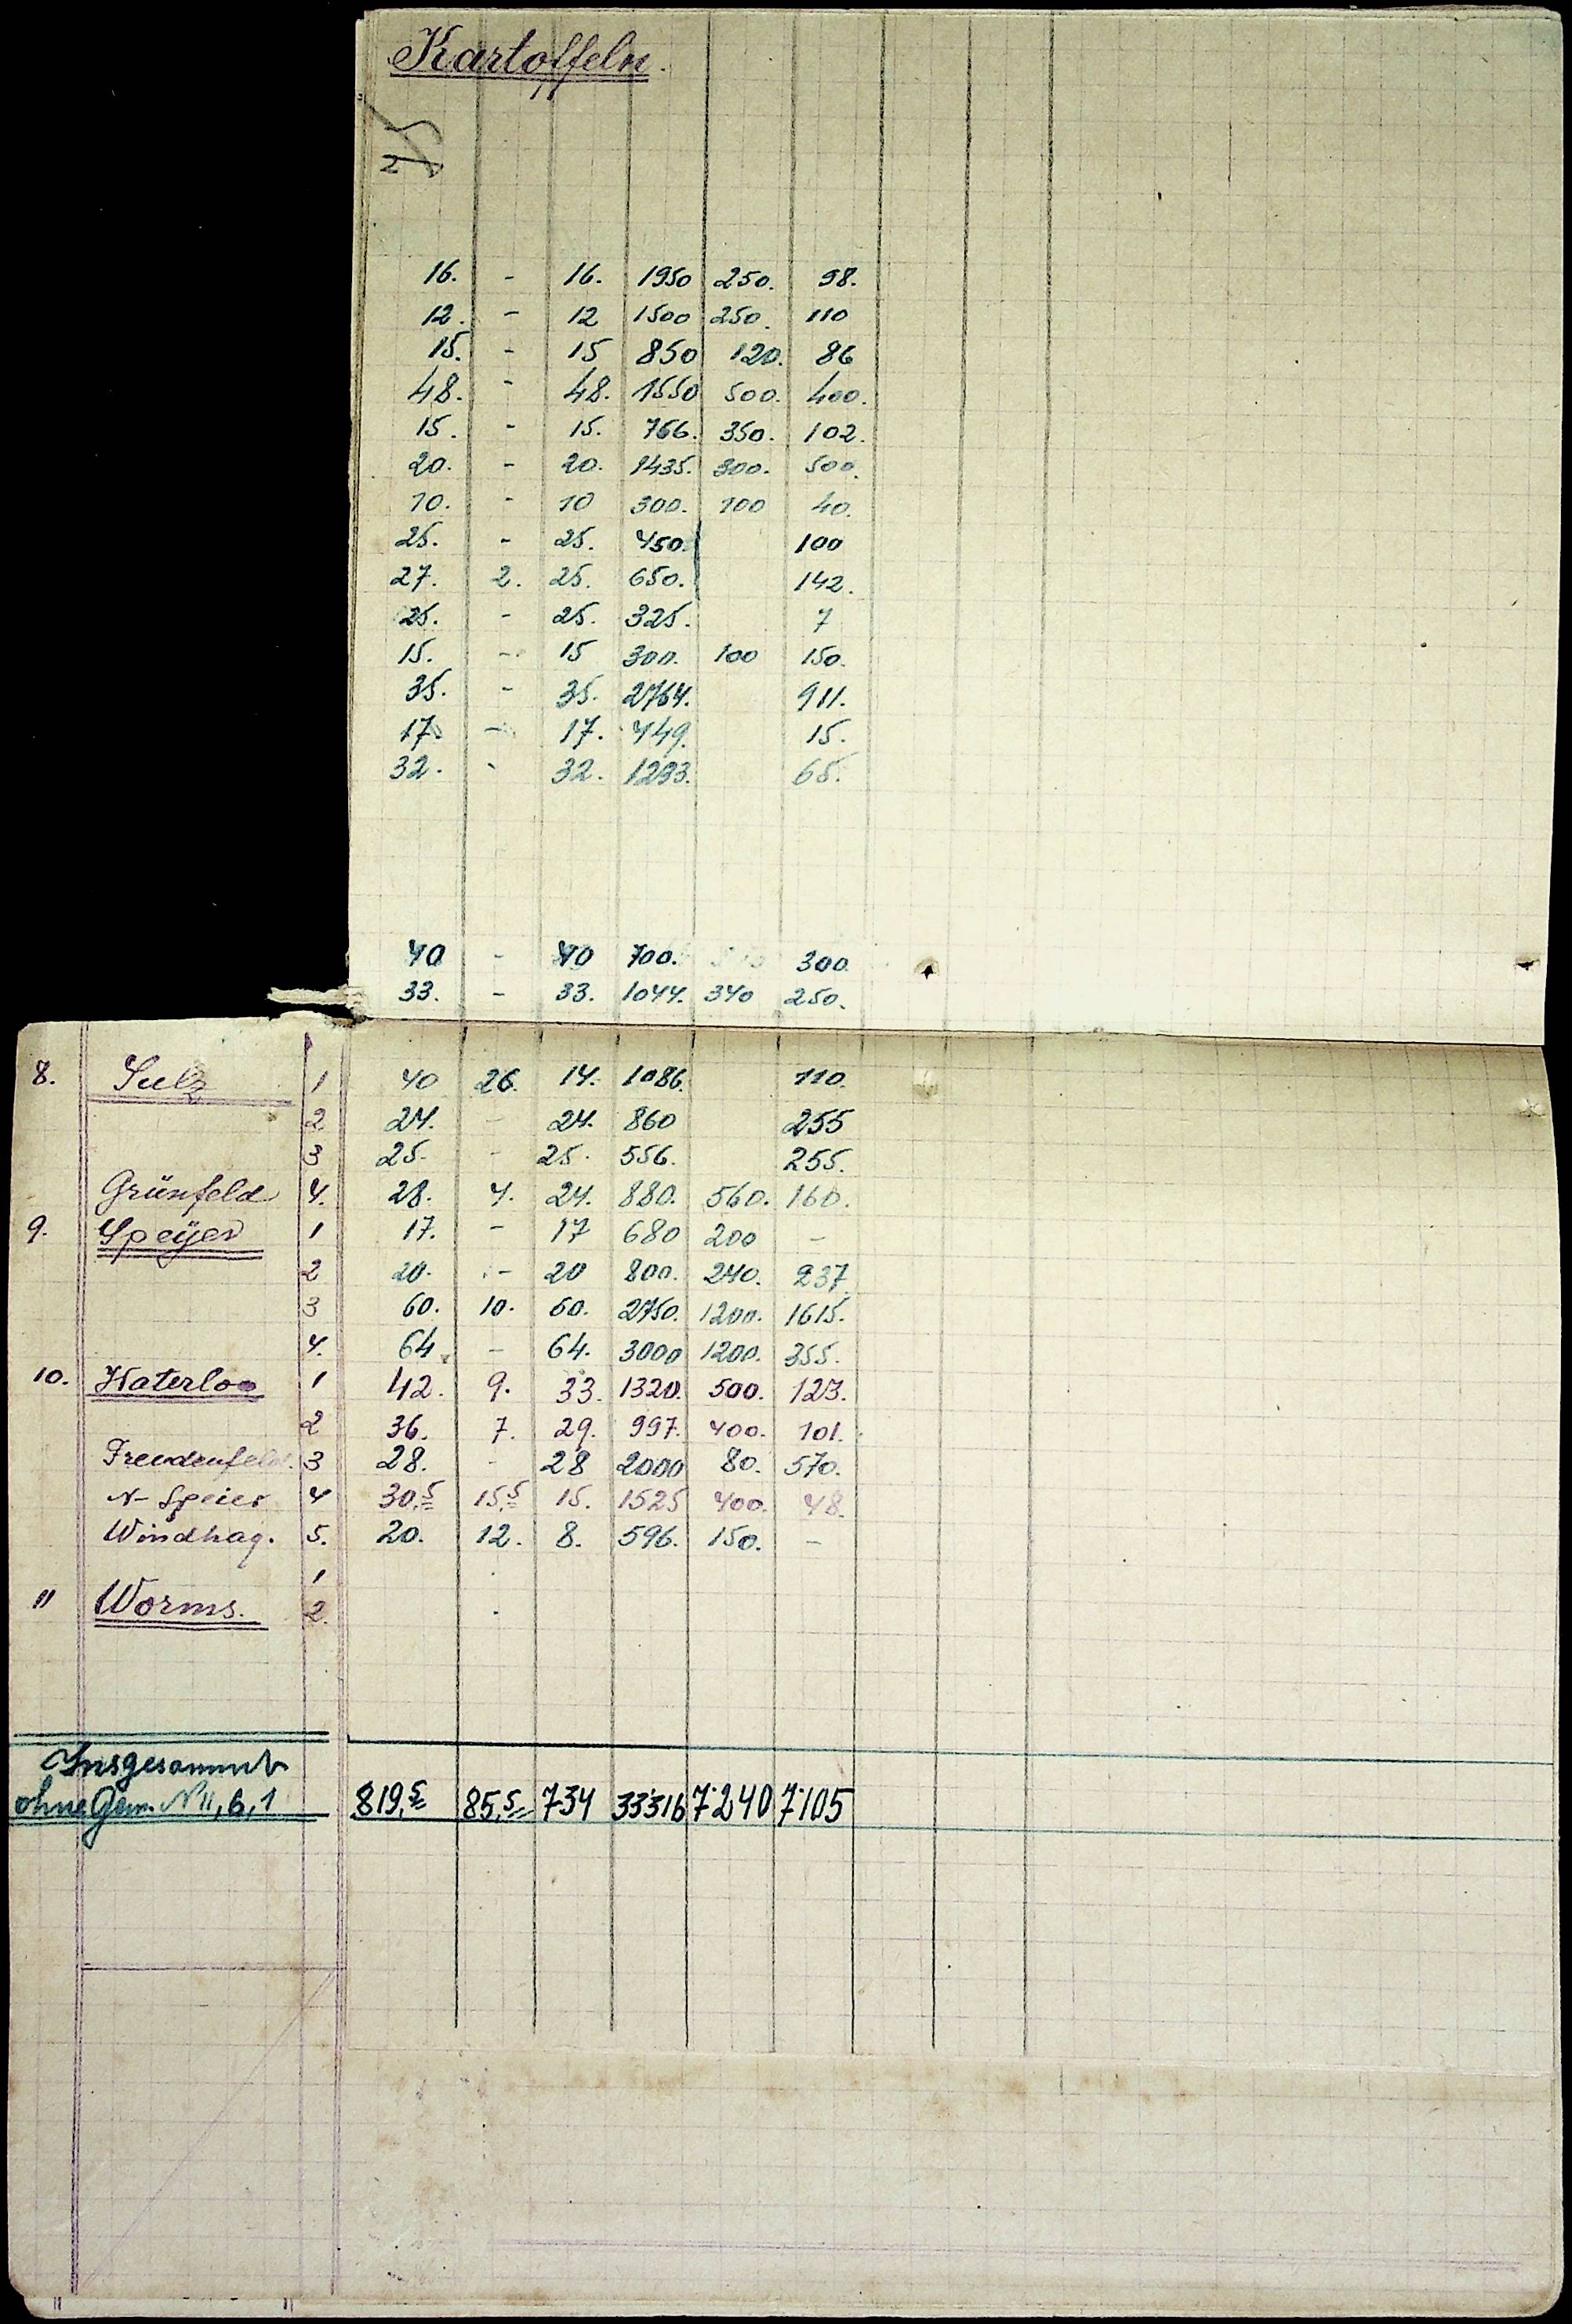 Kartoffeln.
16. - 16. 1950 250. 98.
12. - 12 1500 250. 110
15. - 15 850 120. 86
48. - 48. 1550 500. 400.
15. - 15. 766. 350. 102.
20. - 20. 1435. 300. 500.
10. - 10 300. 100 40.
25. - 25. 450. 100
27. 2. 25. 650. 142.
25. - 25. 325. 7
15. - 15 300. 100 150.
35. - 35. 2764. 911.
17. - 17. 449. 15.
32. - 32. 1293. 65.
40 - 40 700. 300.
33. - 33. 1044. 340 250.
8. Sulz 1 40 26. 14. 1086. 110.
2 24. - 24. 860 255
3 25. - 25. 556. 255.
Grünfeld 4. 28. 4. 24. 880. 560. 160.
9. Speÿer 1 17. - 17 680 200 -
2 20. - 20 800. 240. 237
3 60. 10. 60. 2750. 1200. 1615.
4. 64 - 64. 3000 1200. 355.
10. Waterloo 1 42. 9. 33. 1320. 500. 123.
2 36. 7. 29. 997. 400. 101.
Freudenfeld. 3 28. - 28 2000 80. 570.
N- Speier 4 30,5 15,5 15. 1525 400. 48.
Windhag. 5. 20. 12. 8. 596. 150. -
1
11 Worms. 2.
Insgesammt
ohne Gem. N 11, 6, 1 819,5 85,5 734 33'316 7'240 7'105